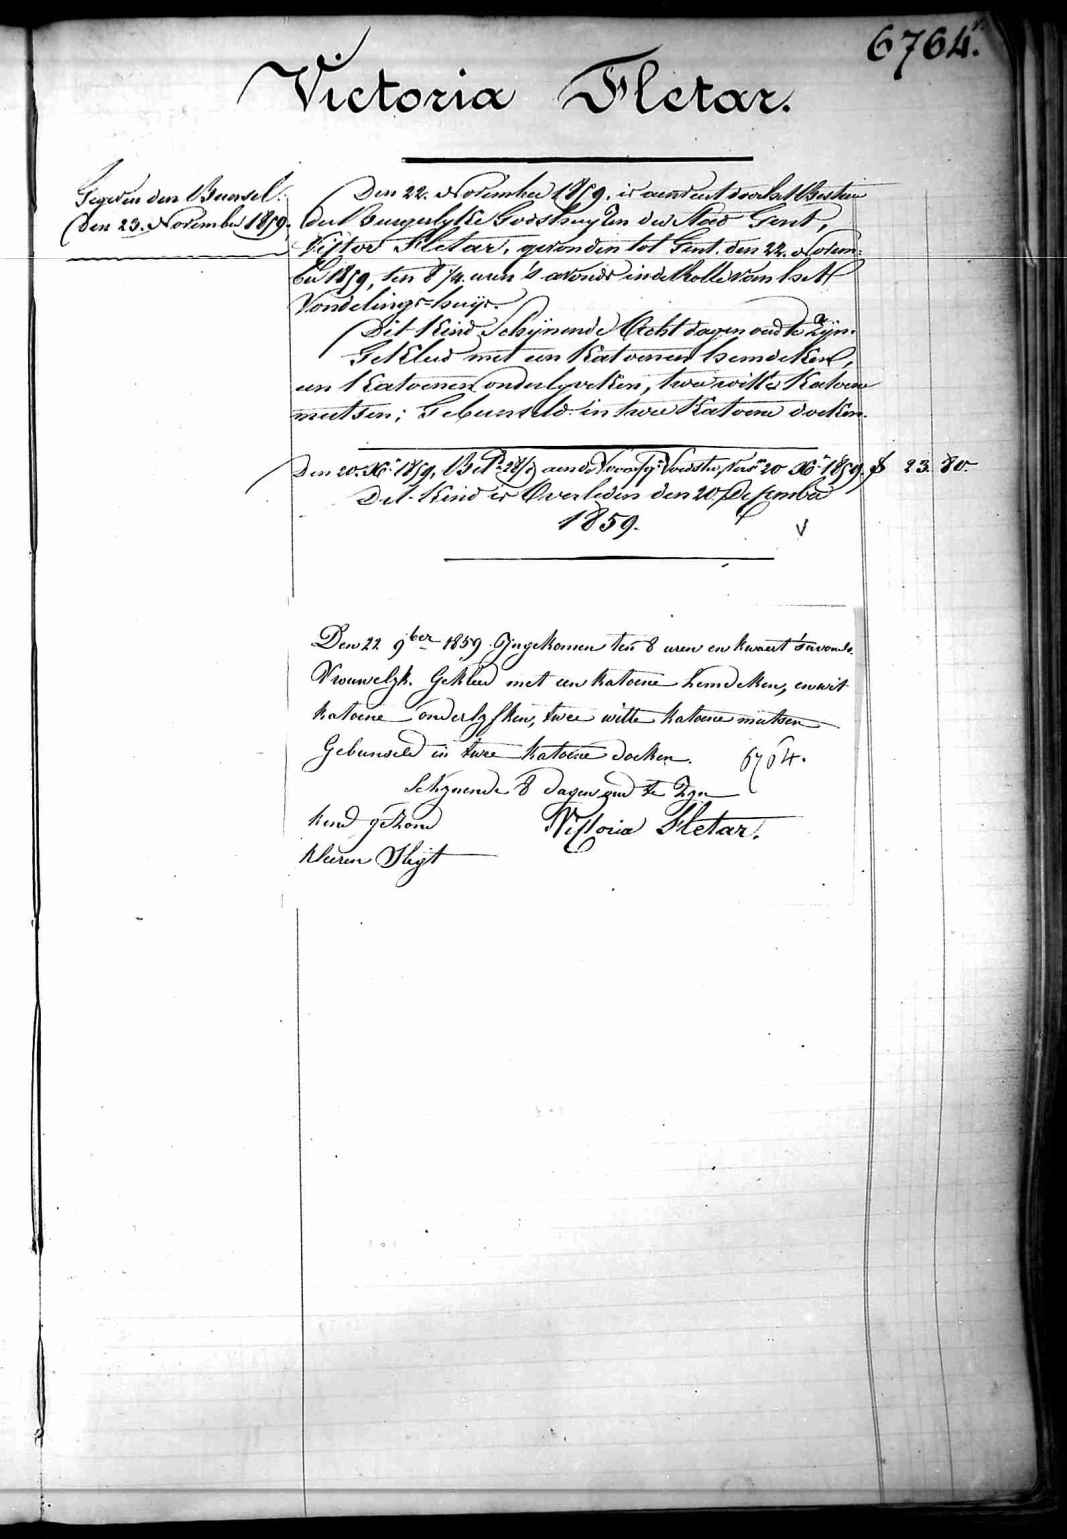 6764.
Victoria Fletar.
Gegeven den Bunsel.
Den 23. November 1859.
Den 22. November 1859. is aenveert door het Bestier
der burgerlyke Godshuyzen der Stad Gent,
Victor Fletar, gevonden tot Gent, den 22. Novem:
ber 1859, ten 8 1/4 uren 's avonds in de Rolle van het
Vondelings=huijs.
Dit Kind Schijnende Acht dagen oud te zijn.
Gekleed met een Katoenen hemdeken,
een Katoenen onderlyveken, twee witte Katoene
mutsen; Gebunseld in twee Katoene doeken.
Den 20. Xr. 1859, 20 Xr. 1859. 23. 80
Dit Kind is Overleden den 20 December
1859.
V
Den 22 9ber 1859 Ingekomen ten 8 uren en kwaert 's avonds
Vrouwelyk. Gekleed met een katoene hemdeken, een wit
katoene onderlyfken, twee witte katoene mutsen
Gebunseld in twee katoene doeken. 6764.
Schynende 8 dagen oud te Zyn
kind gezond Victoria Fletar.
kleeren Slegt